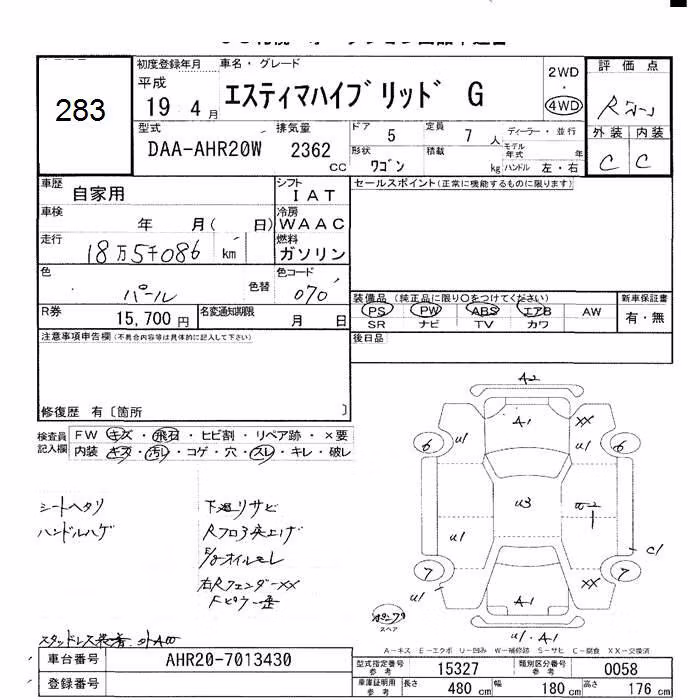 283
初度登録年月
平成
19 4 月
車名・グレード
エスティマハイブリッド G
2WD
・
4WD
評価点
R
外装 内装
C C
型式
DAA-AHR20W
排気量
2362 CC
ドア 5
定員 7 人
ディーラー・並行
形状 ワゴン
積載 kg
モデル年式 年
ハンドル 左・右
車歴 自家用
シフト IAT
車検 年 月( 日)
冷房 WAAC
走行 18万5千086 km
燃料 ガソリン
色 パール
色替
色コード 070
R券 15,700 円
名変通知期限 月 日
セールスポイント(正常に機能するものに限ります)
装備品 (純正品に限り○をつけてください)
PS PW ABS エアB AW
SR ナビ TV カワ
新車保証書
有・無
後日品
注意事項申告欄(不具合内容等は具体的に記入して下さい)
修復歴 有〔箇所 〕
検査員記入欄
FW キズ・飛石・ヒビ割・リペア跡・×要
内装 キズ・汚レ・コゲ・穴・スレ・キレ・破レ
シートヘタリ
ハンドルハゲ
下廻リサビ
E/gオイルモレ
右Rフェンダーxx
A2
A1
xx
u1
u1
6
6
u3
u1
C1
7
7
A1
xx
u1
u1
u1・A1
スペア
A-キズ E-エクボ U-凹み W-補修跡 S-サビ C-腐食 XX-交換済
車台番号 AHR20-7013430
登録番号
型式指定番号 参考 15327
類別区分番号 参考 0058
車庫証明用 参考 長さ 480 cm 幅 180 cm 高さ 176 cm